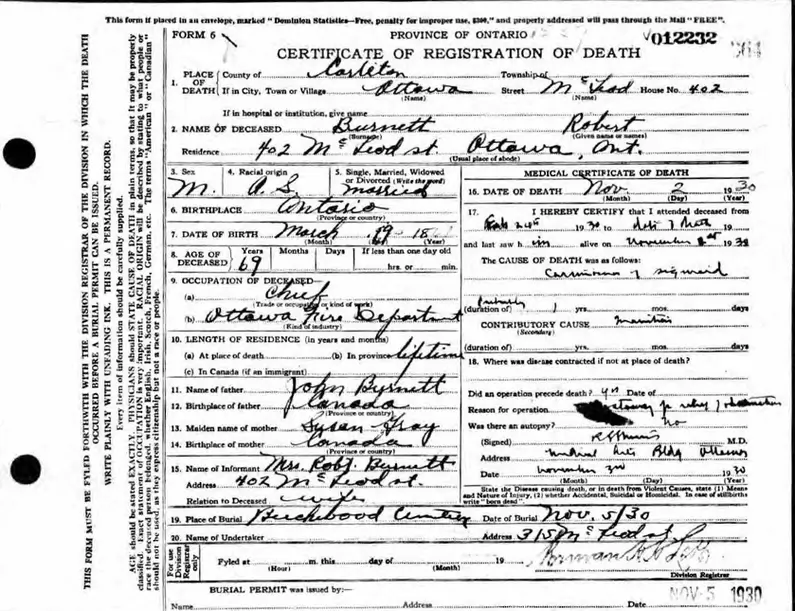 This form if placed in an envelope, marked "Dominion Statistics—Free, penalty for improper use, $300," and properly addressed will pass through the Mail "FREE".
THIS FORM MUST BE FYLED FORTHWITH WITH THE DIVISION REGISTRAR OF THE DIVISION IN WHICH THE DEATH
OCCURRED BEFORE A BURIAL PERMIT CAN BE ISSUED.
WRITE PLAINLY WITH UNFADING INK. THIS IS A PERMANENT RECORD.
Every item of information should be carefully supplied.
AGE should be stated EXACTLY. PHYSICIANS should STATE CAUSE OF DEATH in plain terms, so that it may be properly
classified. Exact statement of OCCUPATION is very important. RACIAL ORIGIN will be described by stating to what people or
race the deceased person belonged, whether English, Irish, Scotch, French, German, etc. The terms "American" or "Canadian"
should not be used, as they express citizenship but not a race or people.
FORM 6 PROVINCE OF ONTARIO 012232
CERTIFICATE OF REGISTRATION OF DEATH
1. PLACE OF DEATH County of Carleton Township of
If in City, Town or Village Ottawa Street McLeod House No. 402
(Name) (Name)
If in hospital or institution, give name
2. NAME OF DECEASED Burnett Robert
(Surname) (Given name or names)
Residence 402 McLeod st. Ottawa, Ont.
(Usual place of abode)
3. Sex M. 4. Racial origin 5. Single, Married, Widowed or Divorced (Write the word) married
6. BIRTHPLACE Ontario
(Province or country)
7. DATE OF BIRTH March 19 18
(Month) (Year)
8. AGE OF DECEASED Years 69 Months Days If less than one day old
hrs. or min.
9. OCCUPATION OF DECEASED—
(a) Chief
(Trade or occupation or kind of work)
(b) Ottawa Fire Department
(Kind of industry)
10. LENGTH OF RESIDENCE (in years and months)
(a) At place of death (b) In province lifetime
(c) In Canada (if an immigrant)
11. Name of father John Burnett
12. Birthplace of father Canada
(Province or country)
13. Maiden name of mother Susan Gray
14. Birthplace of mother Canada
(Province or country)
15. Name of Informant Mrs. Robt. Burnett
Address 402 McLeod st.
Relation to Deceased wife
MEDICAL CERTIFICATE OF DEATH
16. DATE OF DEATH Nov. 2 1930
(Month) (Day) (Year)
17. I HEREBY CERTIFY that I attended deceased from
24th 1930 to 19
and last saw him alive on November 1930
The CAUSE OF DEATH was as follows:
Carcinoma of sigmoid
(duration of) 1 yrs. mos. days
CONTRIBUTORY CAUSE
(Secondary)
(duration of) yrs. mos. days
18. Where was disease contracted if not at place of death?
Did an operation precede death? yes Date of
Reason for operation obstruction
Was there an autopsy? no
(Signed) M.D.
Address Medical Arts Bldg Ottawa
Date November 3rd 1930
(Month) (Day) (Year)
State the Disease causing death, or in death from Violent Causes, state (1) Means
and Nature of Injury, (2) whether Accidental, Suicidal or Homicidal. In case of stillbirths
write "born dead".
19. Place of Burial Beechwood Cemetery Date of Burial Nov. 5/30
20. Name of Undertaker Address 315 McLeod st.
For use Division Registrar only
Fyled at m. this day of 19
(Hour) (Month)
Division Registrar
BURIAL PERMIT was issued by:—
NOV-5 1930
Name Address Date